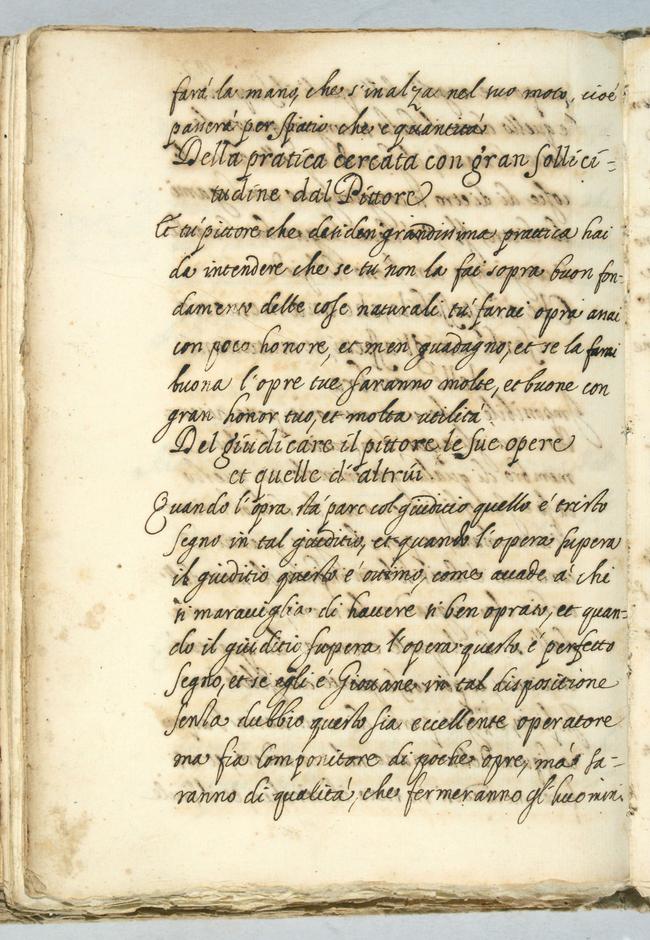 farà la mano, che s'inalza nel suo moto, cioè
passerà per spatio che è quantità
Della pratica cercata con gran sollici=
tudine dal Pittore.
Et tù pittore che desideri grandissima prattica hai
da intendere che se tù non la fai sopra buon fon=
damento delle cose naturali tù farai opra assai
con poco honore, et men guadagno, et se la farai
buona l'opre tue saranno molte, et buone con
gran honor tuo, et molta utilità.
Del giudicare il pittore le sue opere
et quelle d'altrui.
Quando l'opra stà pare col giuditio quello è tristo
segno in tal giuditio, et quando l'opera supera
il giuditio questo è ottimo, come accade à chi
si maraviglia di havere si ben oprato, et quan=
do il giuditio supera l'opera questo è perfetto
segno, et se egli è Giovane in tal dispositione
senza dubbio questo sia eccellente operatore
ma fia componitore di poche opre, mà sa=
ranno di qualità, che fermeranno gl'huomini